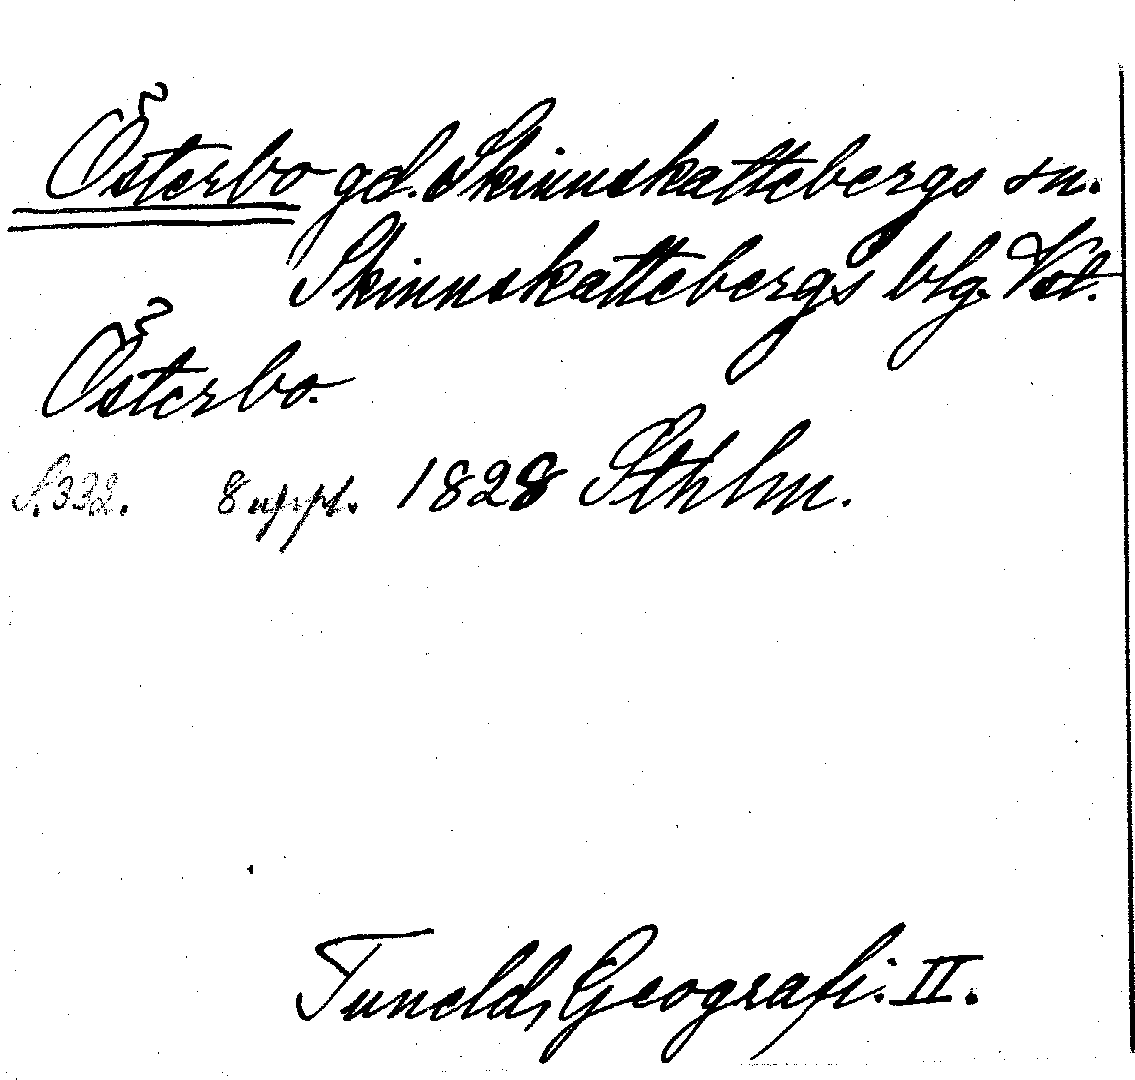 Österbo gd. Skinnskattebergs sn.
Skinnskattebergs blg. Vstl.
Österbo.
S. 332. 8 uppl. 1828 Sthlm.
Tuneld, Geografi. II.